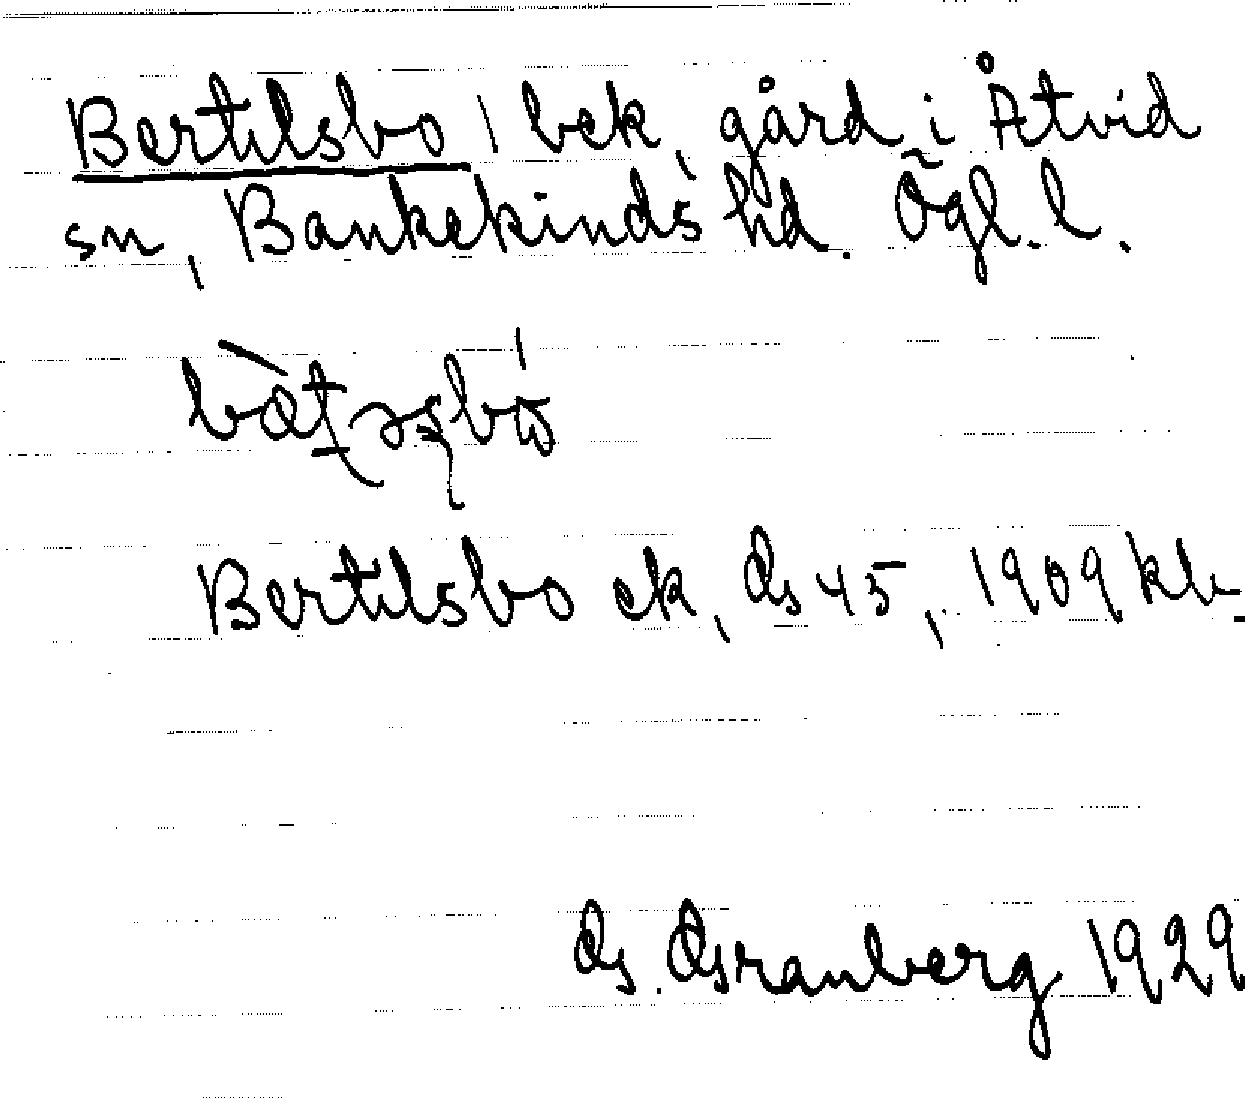 Bertilsbo, bek, gård i Åtvid
sn, Bankekinds hd. Ögl. l.
Bertilsbo ek, Gs 45, 1909 kb.
G. Granberg 1929